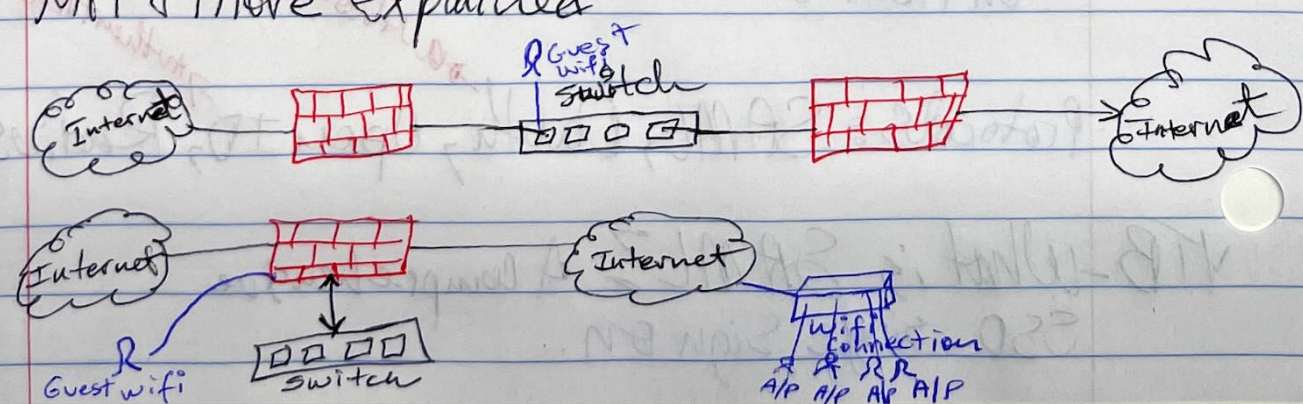 more explained
Guest
wifi
Switch
Internet
Internet
Internet
Internet
Guest wifi
Switch
Wifi
Connection
A/P A/P A/P A/P